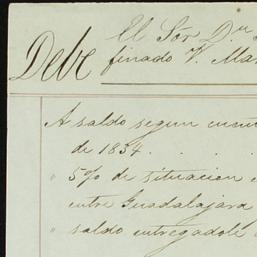 Debe
El Sór Dn
finado V. Mar
A saldo segun cuen
de 1834 . . .
" 5% de situacion
entre Guadalajara
" saldo entregadole